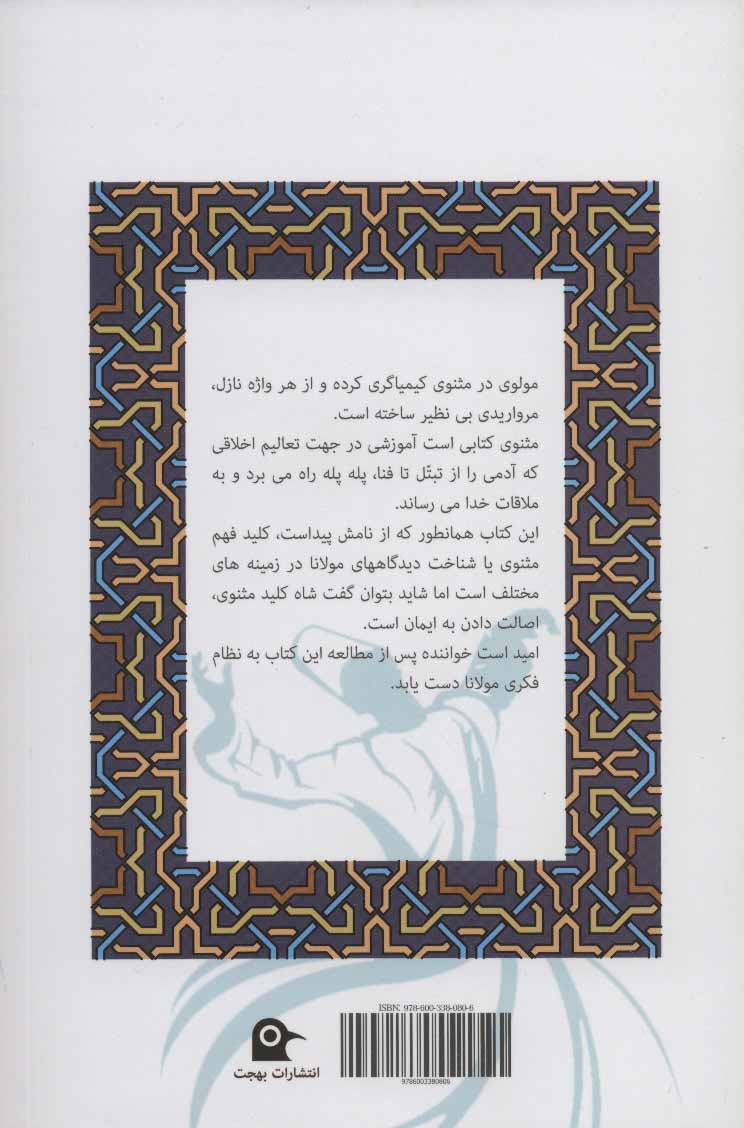 مولوی در مثنوی کیمیاگری کرده و از هر واژه نازل،
مرواریدی بی نظیر ساخته است.
مثنوی کتابی است آموزشی در جهت تعالیم اخلاقی
که آدمی را از تبتّل تا فنا، پله پله راه می برد و به
ملاقات خدا می رساند.
این کتاب همانطور که از نامش پیداست، کلید فهم
مثنوی یا شناخت دیدگاههای مولانا در زمینه های
مختلف است اما شاید بتوان گفت شاه کلید مثنوی،
اصالت دادن به ایمان است.
امید است خواننده پس از مطالعه این کتاب به نظام
فکری مولانا دست یابد.
ISBN: 978-600-338-080-6
9786003380806
انتشارات بهجت